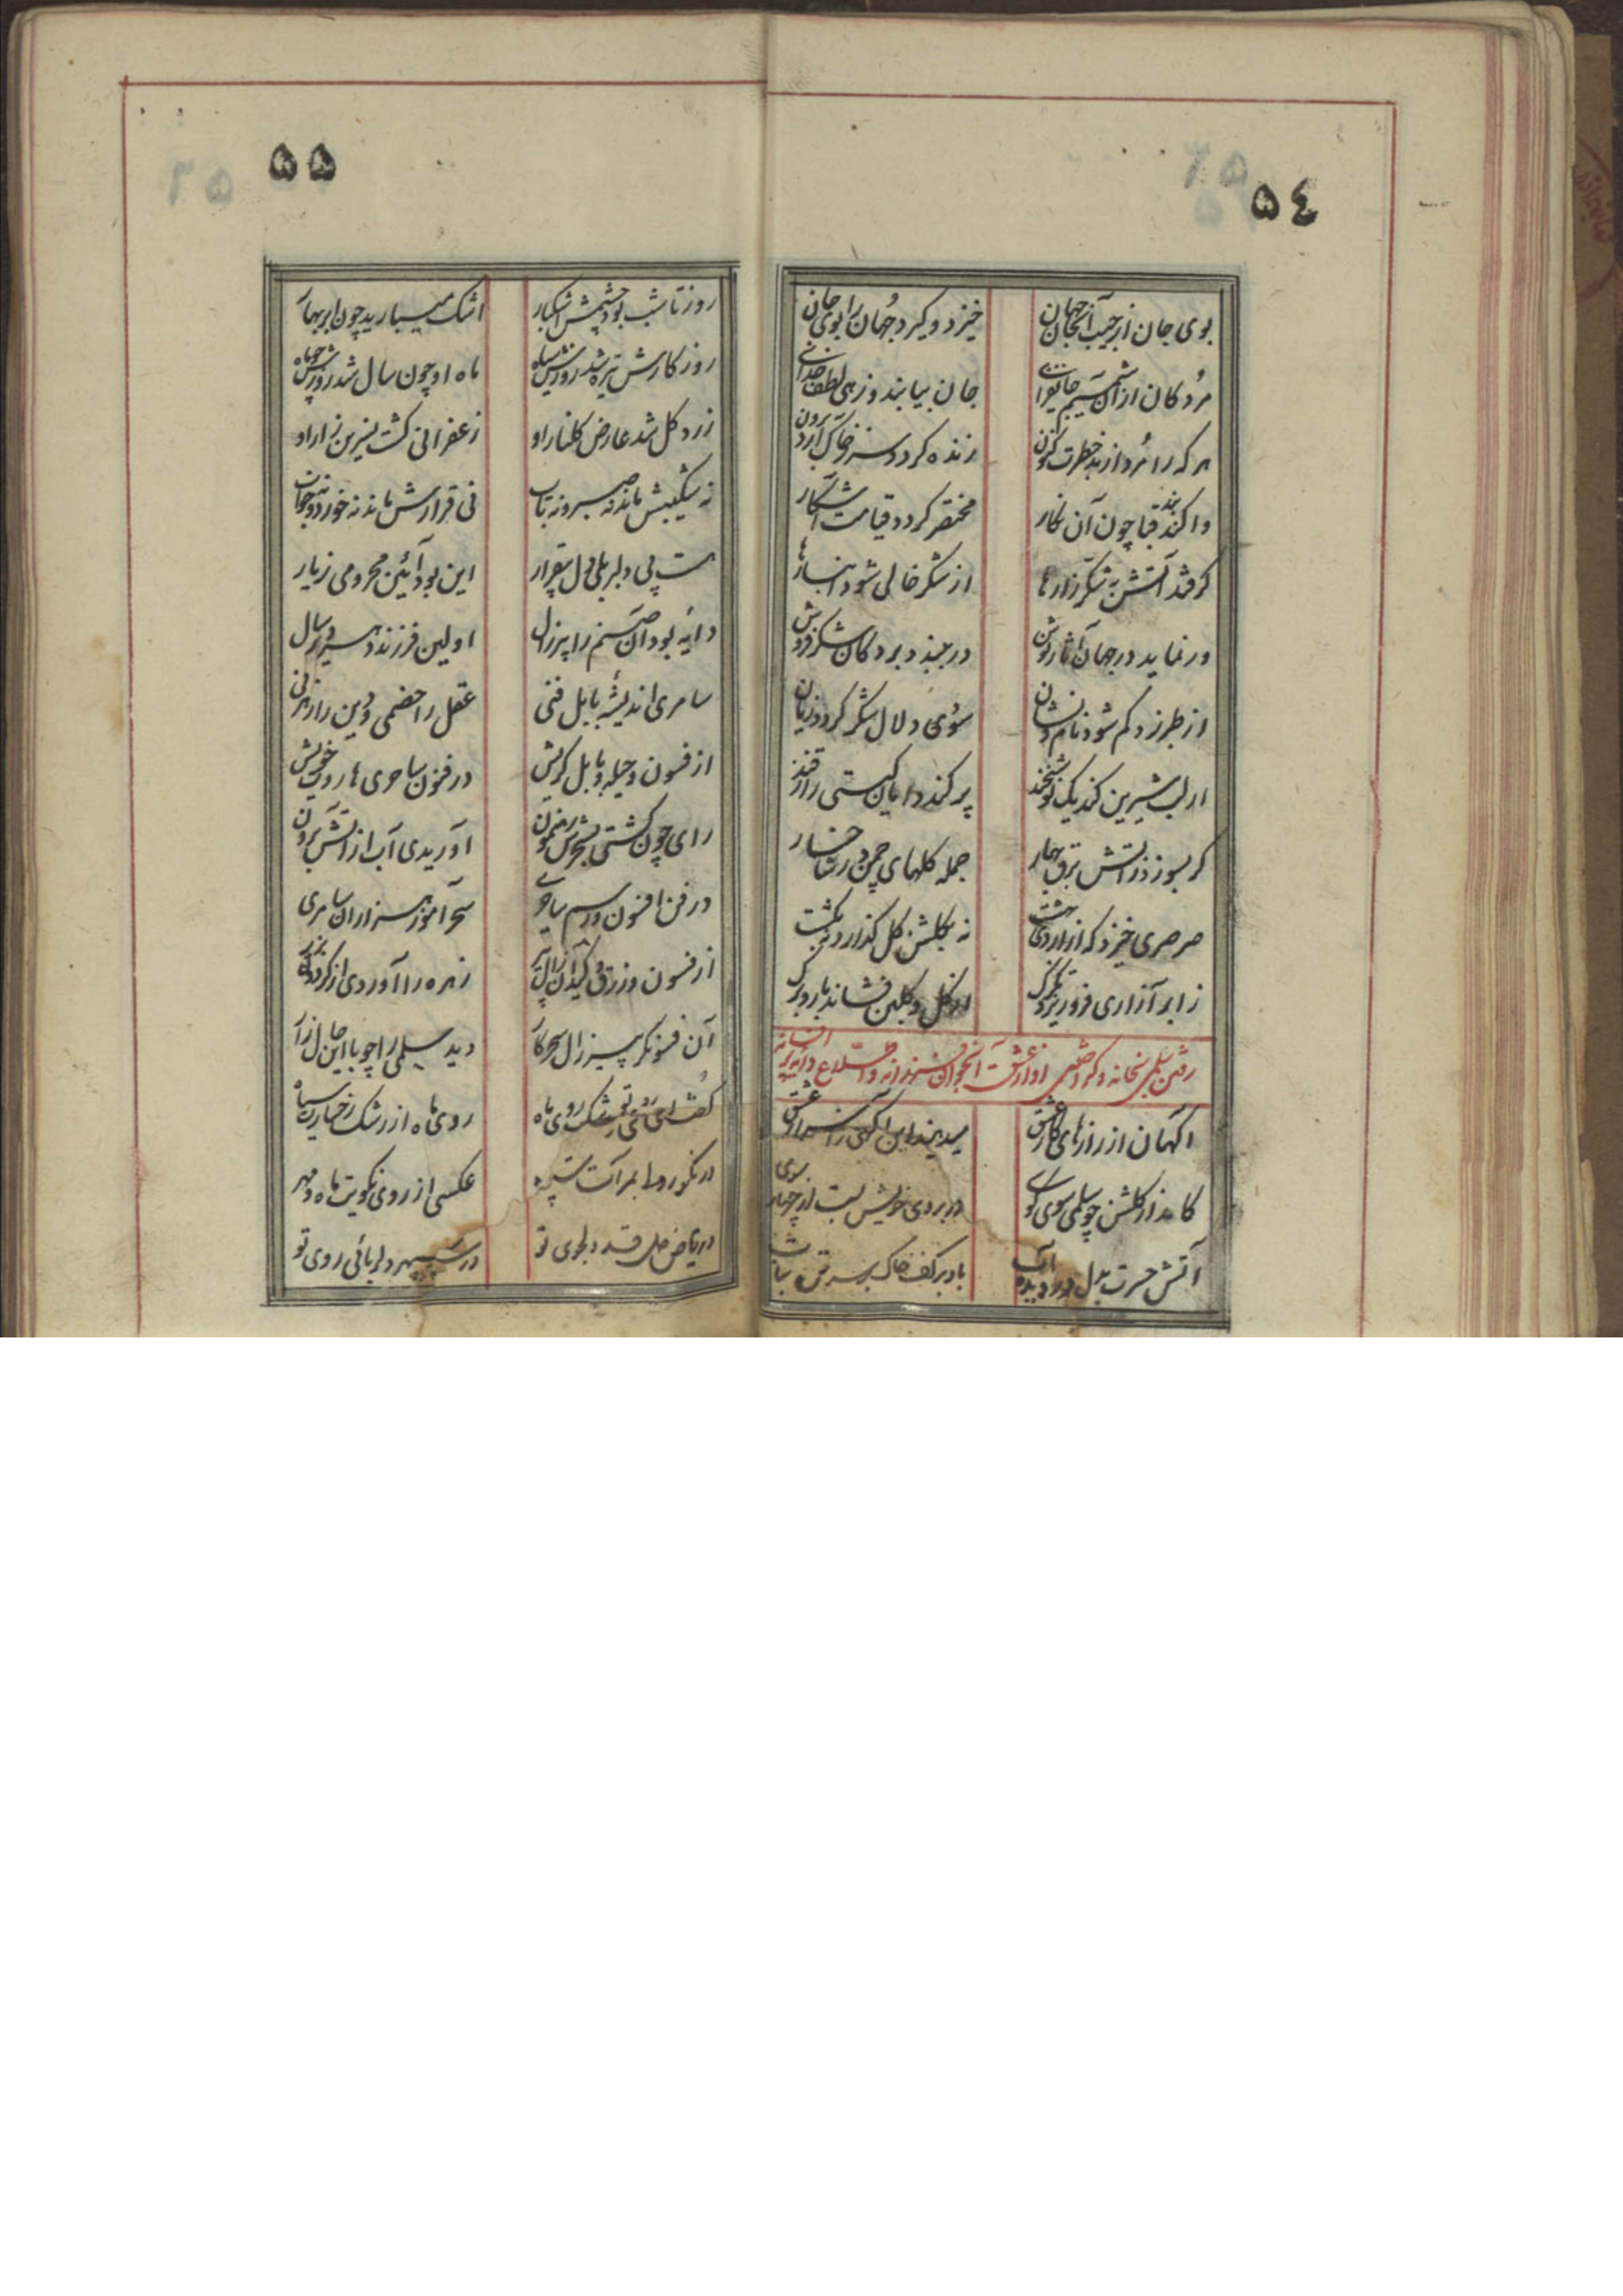 ۵۴
بوی جان از جیب آن جهان خیزد و گیرد جهان را بوی جان
مردگان از آن شمیم جانفزای جان بیابند و زهی لطف خدای
هر که را مرد از بد فطرت کنون زنده گردد سر ز خاک آرد برون
واکند بند قبا چون آن نگار مختصر گردد قیامت آشکار
گر فتد آتش به شکرزارها از شکر خالی شود انبارها
ور نماید در جهان آثار نوش در ببندد بر دکان شکر فروش
از طبرزد گم شود نام و نشان سوی دلال شکر گردد زیان
از لب شیرین کند یک نوشخند پر کند دامان گیتی را ز قند
گر بسوزد ز آتش برق بهار جمله گلهای چمن در شاخسار
صرصری خیزد که از اردیبهشت نه بگلشن گل گذارد نه بکشت
ز ابر آزاری فرو ریزد تگرگ از گل و گلبن فشاند بار و برگ
رفتن سلمی بخانه و
آگهان از رازهای کار عشق میدهند این آگهی ز اسرار عشق
کامد از گلشن چو سلمی سوی کوی در بروی خویش بست از چهار سوی
آتش حسرت بدل در دیده آب باد بر کف خاک بر سر تن بتاب
۵۵
روز تا شب بود چشمش اشکبار اشک میبارید چون ابر بهار
روزگارش تیره شد روزش سیاه ماه او چون سال شد روزش چو ماه
زرد گل شد عارض گلنار او زعفرانی گشت نسرین زار او
نه شکیبش ماند نه صبر و نه تاب نی قرارش ماند نه خورد و نه خواب
هست پی دلبر بلی دل بیقرار این بود آئین محرومی ز یار
دایه بود آن صنم را پیر زال اولین فرزند دهر دیر سال
سامری اندیشهٔ بابل فنی عقل را خصمی و دین را رهزنی
از فسون و حیله و بابل گریش در فنون ساحری هاروت خویش
رای چون گشتی بسحرش رهنمون آوریدی آب از آتش برون
در فن افسون و رسم ساحری سحر آموز هزاران سامری
از فسون و زرق و کید آن زال پیر زهره را آوردی از گردون بزیر
آن فسونگر پیر زال سحر کار دید سلمی را چو با این حال زار
گفت ای روی تو رشک روی ماه روی ماه از رشک رخسارت سیاه
ای نکو رو عکسی از روی نکویت ماه و مهر
در ریاض قد دلجوی تو در سپهر دلربائی روی تو